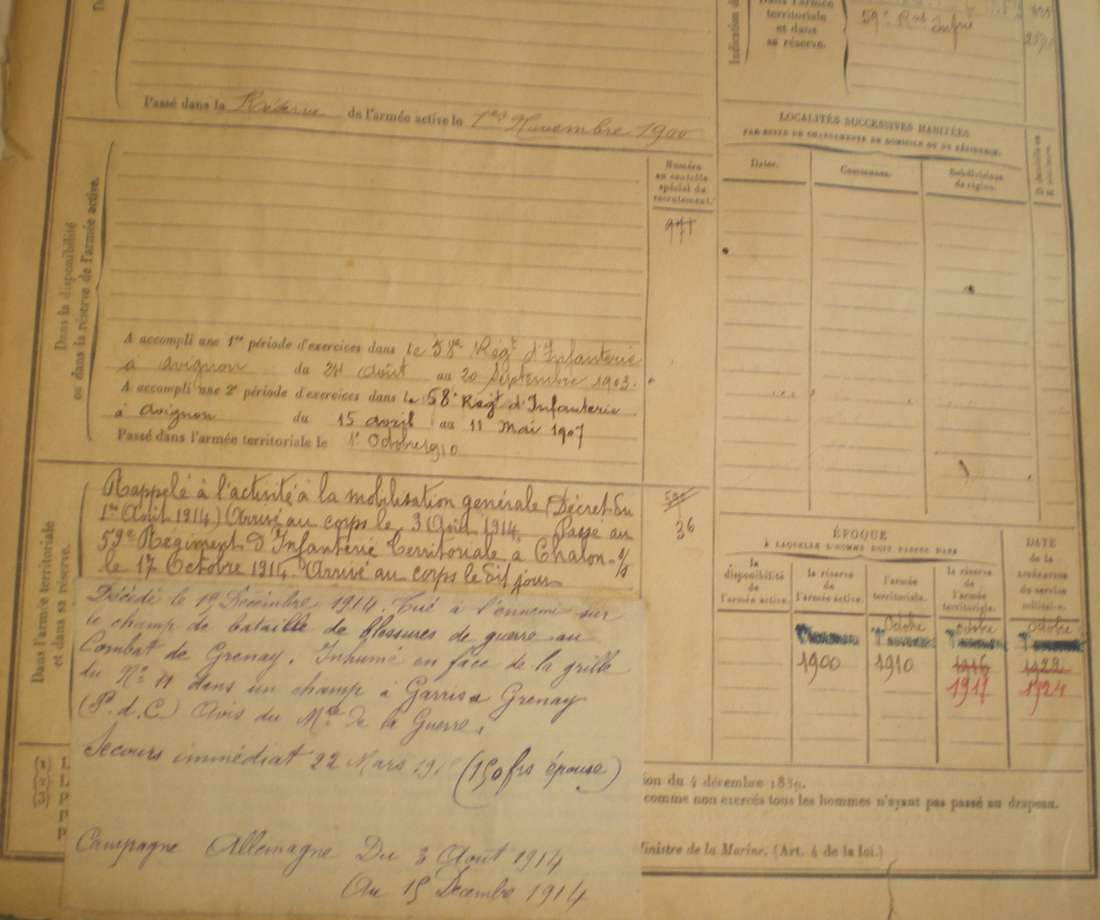 territoriale
et dans
sa réserve.
59e Rgt Infrie
Indication
Passé dans la Réserve de l'armée active le 1er Novembre 1900
LOCALITÉS SUCCESSIVES HABITÉES
PAR SUITE DE CHANGEMENTS DE DOMICILE OU DE RÉSIDENCE.
Numéro
au contrôle
spécial du
recrutement.
Dates.
Communes.
Subdivisions
de région.
971
Dans la disponibilité
ou dans la réserve de l'armée active.
A accompli une 1re période d'exercices dans le 58e Régt d'Infanterie
à Avignon du 24 Août au 20 Septembre 1903.
A accompli une 2e période d'exercices dans le 58e Régt d'Infanterie
à Avignon du 15 avril au 11 Mai 1907
Passé dans l'armée territoriale le 1r Octobre 1910
Dans l'armée territoriale
et dans sa réserve.
Rappelé à l'activité à la mobilisation générale (Décret du
1er Août 1914) Arrivé au corps le 3 Août 1914. Passé au
59e Régiment d'Infanterie Territoriale à Chalon s/s
le 17 Octobre 1914. Arrivé au corps le dit jour
36
Décédé le 15 Décembre 1914. Tué à l'ennemi sur
le champ de bataille de blessures de guerre au
Combat de Grenay. Inhumé en face de la grille
du N° 11 dans un champ à Grenay
(P. d. C.) Avis du Mtre de la Guerre.
Secours immédiat 22 Mars (150 frs épouse)
Campagne Allemagne Du 3 Août 1914
Au 15 Décembre 1914
ÉPOQUE
À LAQUELLE L'HOMME DOIT PASSER DANS
DATE
de la
LIBÉRATION
du service
militaire.
la
disponibilité
de l'armée active.
la réserve
de
l'armée active.
l'armée
territoriale.
la réserve
de
l'armée
territoriale.
Octobre Octobre Octobre
1900 1910 1916 1922
1917 1924
du 4 décembre 1889.
comme non exercés tous les hommes n'ayant pas passé au drapeau.
Ministre de la Marine. (Art. 4 de la loi.)